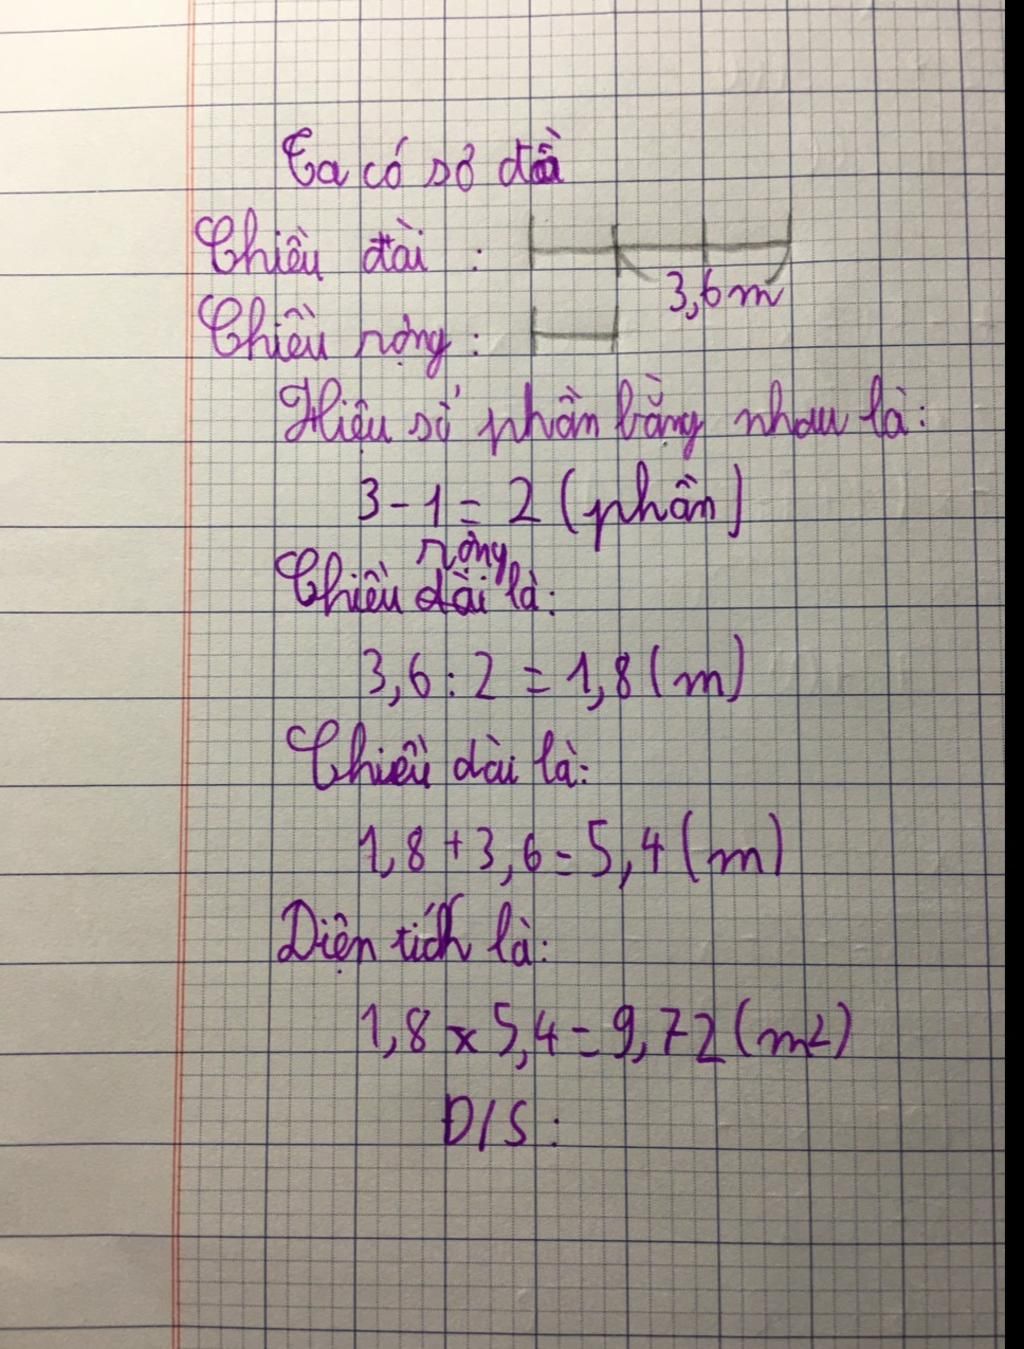 Ta có sơ đồ
Chiều dài :
3,6 m
Chiều rộng :
Hiệu số phần bằng nhau là:
3 - 1 = 2 (phần)
rộng
Chiều dài là:
3,6 : 2 = 1,8 (m)
Chiều dài là:
1,8 + 3,6 = 5,4 (m)
Diện tích là:
1,8 x 5,4 = 9,72 (m2)
Đ/S :